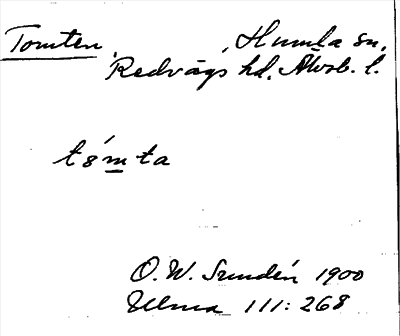 Tomten. Humla sn,
Redvägs hd, Älvsb. l.
tómta
O. W. Sundén 1900
Ulma 111:268